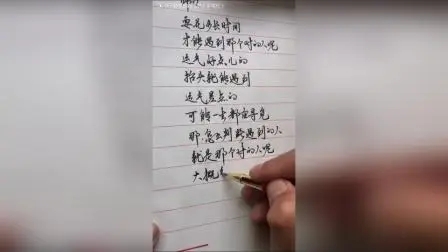 要花多长时间
才能遇到那个对的人呢
运气好点儿的
抬头就能遇到
运气差点的
可能一辈都在寻觅
那怎么判断遇到的人
就是那个对的人呢
大概